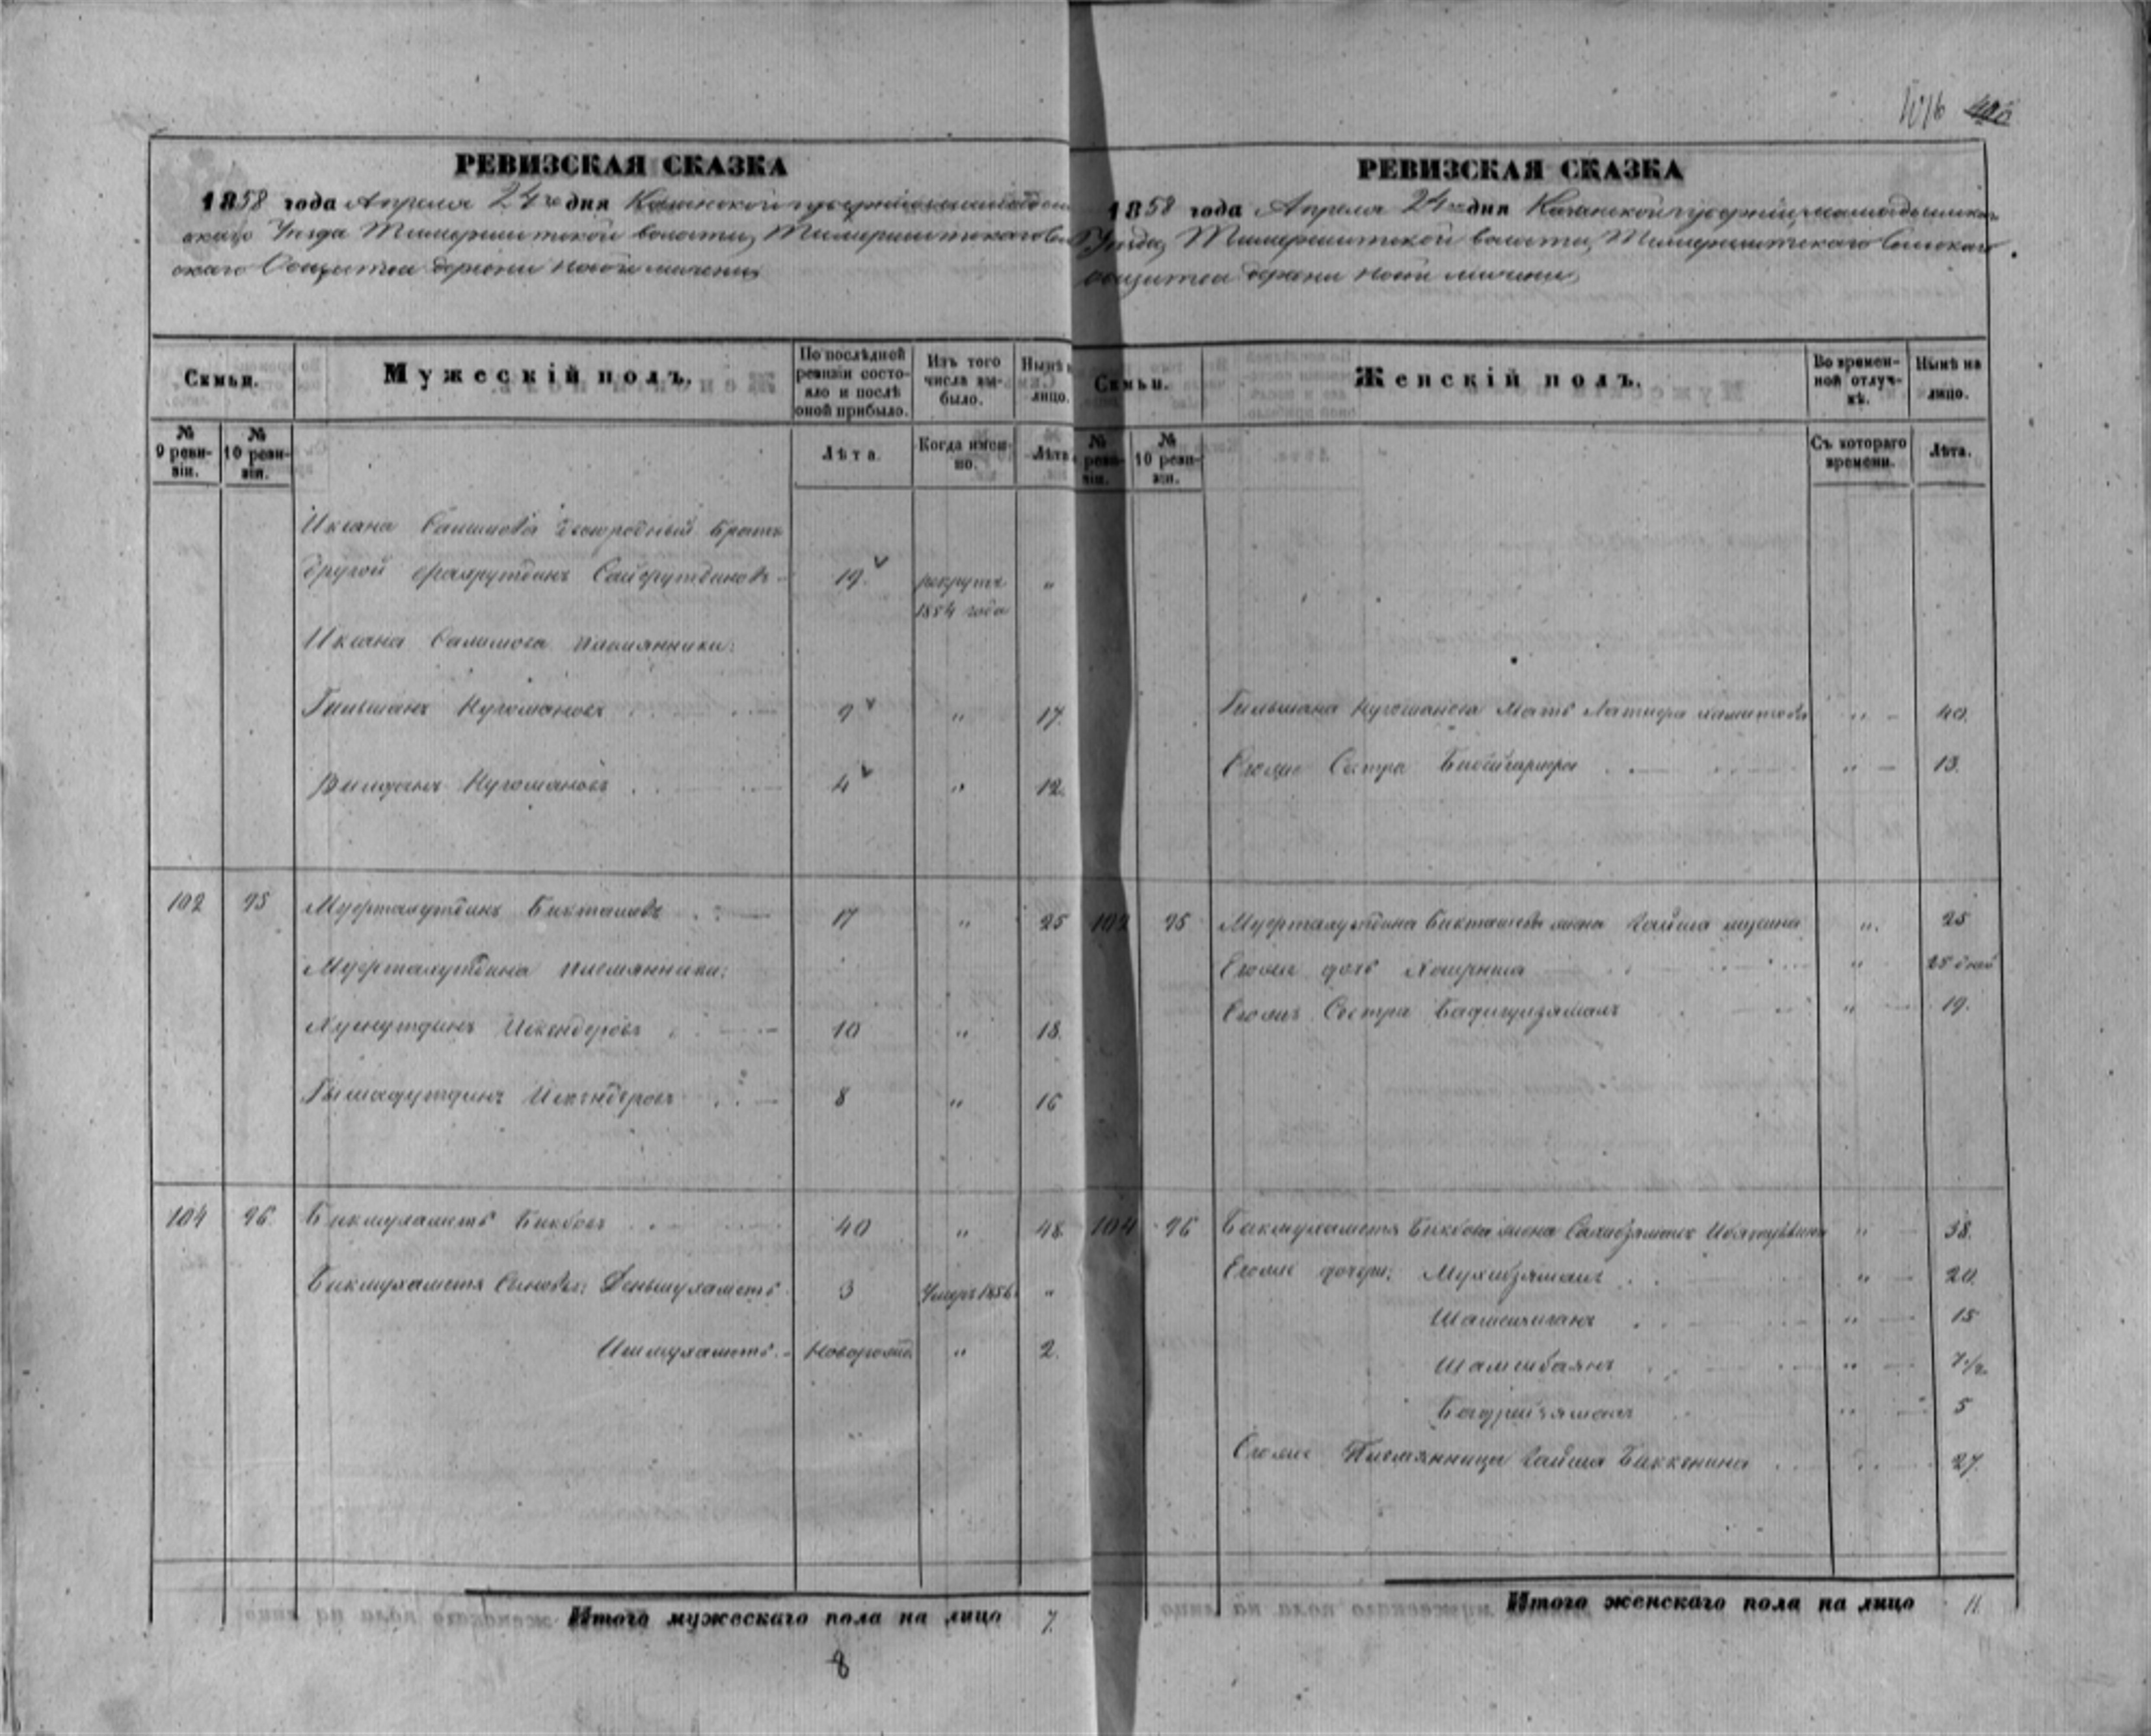 416
РЕВИЗСКАЯ СКАЗКА
1858 года Апреля 24го дня Казанской губернiи мамадыш
скаго Уезда Тимершитской волости, Тимершитскаго
скаго Общества деревни новой мичени
Семьи.
Мужескiй полъ.
По послѣдней ревизiи состояло и послѣ оной прибыло.
Изъ того числа выбыло.
Нынѣ на лицо.
№ 9 ревизiи.
№ 10 ревизiи.
Лѣта.
Когда именно.
Лѣта
Иксана Салимова двоюродный братъ
другой фахрутдинъ Сайфутдиновъ 19. рекрутъ 1854 года "
Иксана Салимова племянники:
Гильманъ Нугомановъ 9 " 17.
Вилданъ Нугомановъ 4 " 12.
102 95 Муфтахутдинъ Бикташевъ 17 " 25
Муфтахутдина племянники:
Хуснутдинъ Искендеровъ 10 " 18.
Гимадутдинъ Искендеровъ 8 " 16
104 96 Бикмухаметъ Бикбовъ 40 " 48.
Бикмухаметя Сыновья: Деньмухаметъ 3 Умеръ 1856 "
Ишмухаметъ Новорожд. " 2.
Итого мужескаго пола на лицо 7.
8
РЕВИЗСКАЯ СКАЗКА
1858 года Апреля 24го дня Казанской губернiи, мамадышскаго
Уезда, Тимершитской волости, Тимершитскаго Сельскаго
общества деревни новой мичени,
Семьи.
Женскiй полъ.
Во временной отлучкѣ.
Нынѣ на лицо.
№ ревизiи.
№ 10 ревизiи.
Съ котораго времени.
Лѣта.
Гильмана Нугоманова Мать Латифа хамитова " 40.
Егоже Сестра Бибигарифа " 13.
102 95 Муфтахутдина Бикташева жена Гайша мусина " 25
Егоже дочь " 25 дней
Егоже Сестра Бадигулзямалъ " 19.
104 96 Бикмухаметя Бикбова жена Сахибзямалъ " 38.
Егоже дочери: Мухибзямалъ " 20.
Шамсиянъ " 15
Шамсибаянъ " 7 1/2
Бадризямалъ " 5
Егоже Племянница Гайша Биккенина " 27.
Итого женскаго пола на лицо 11.